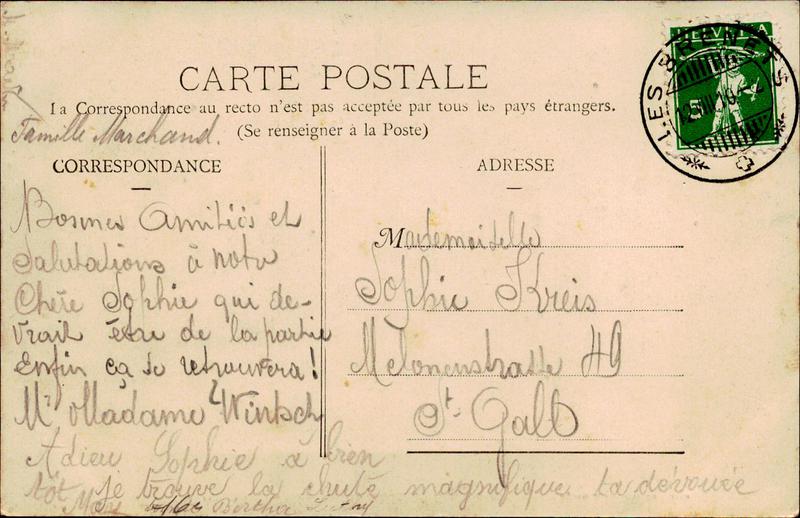 HELVETIA
5
LES BRENETS
12.VIII.
CARTE POSTALE
La Correspondance au recto n'est pas acceptée par tous les pays étrangers.
(Se renseigner à la Poste)
Famille Marchand.
CORRESPONDANCE
Bonnes Amitiés et
Salutations à notre
Chère Sophie qui de-
vrait être de la partie
Enfin ça se retrouvera!
Mr Madame Wintsch
Adieu Sophie à bien
tôt je trouve la chute magnifique ta dévouée
Bertha
ADRESSE
Mademoiselle
Sophie Kreis
Melonenstrasse 49
St. Gall